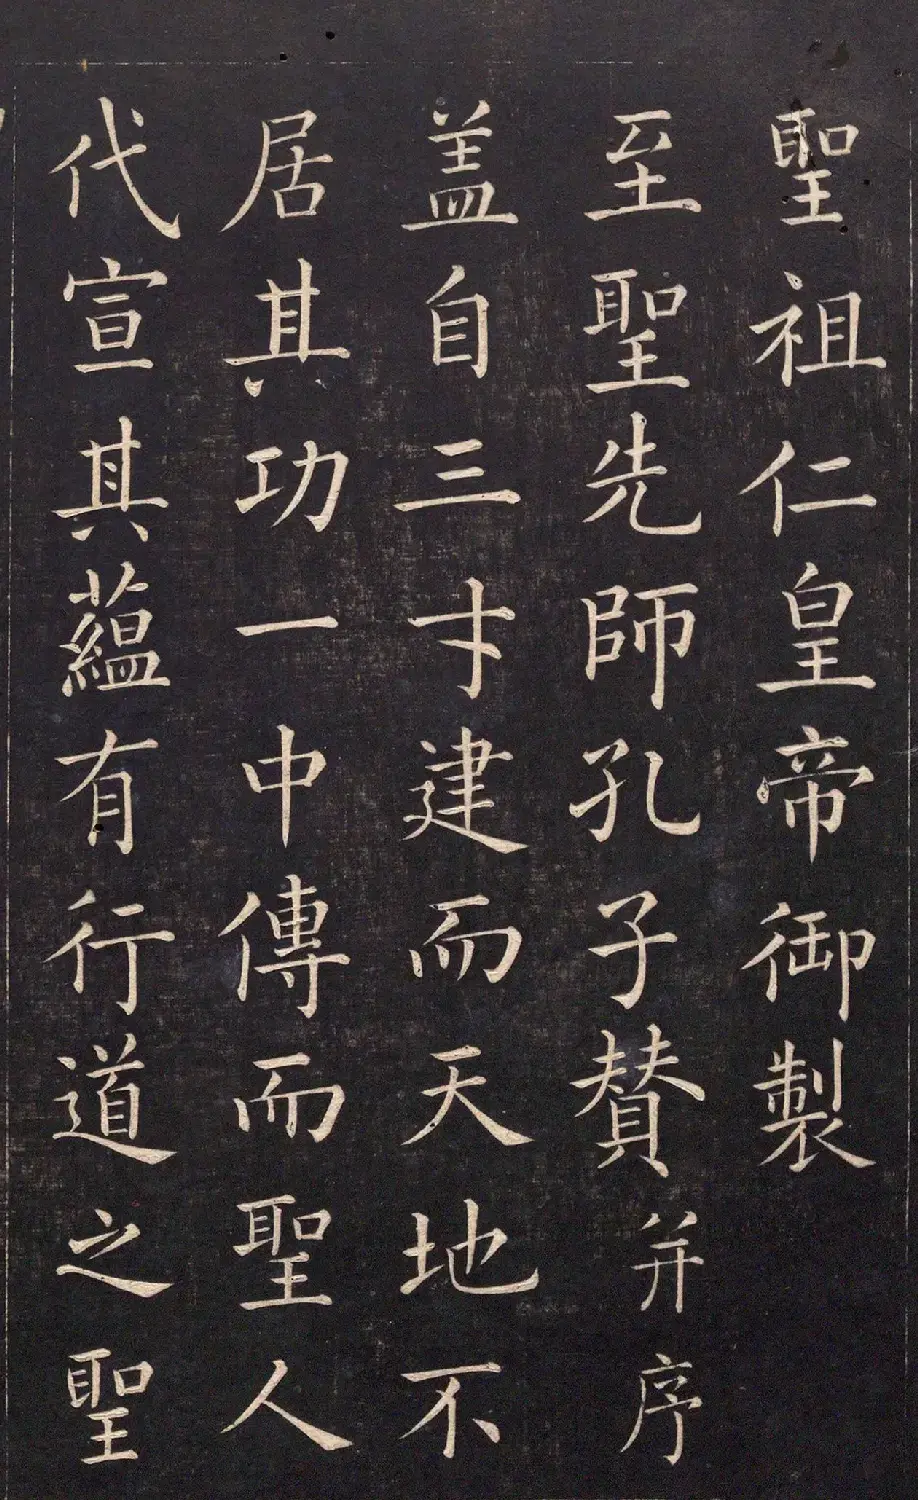 聖祖仁皇帝御製
至聖先師孔子賛并序
盖自三才建而天地不
居其功一中傳而聖人
代宣其蘊有行道之聖